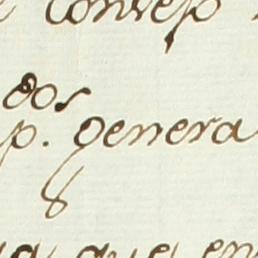 Consejo
dos
p. genera
que en